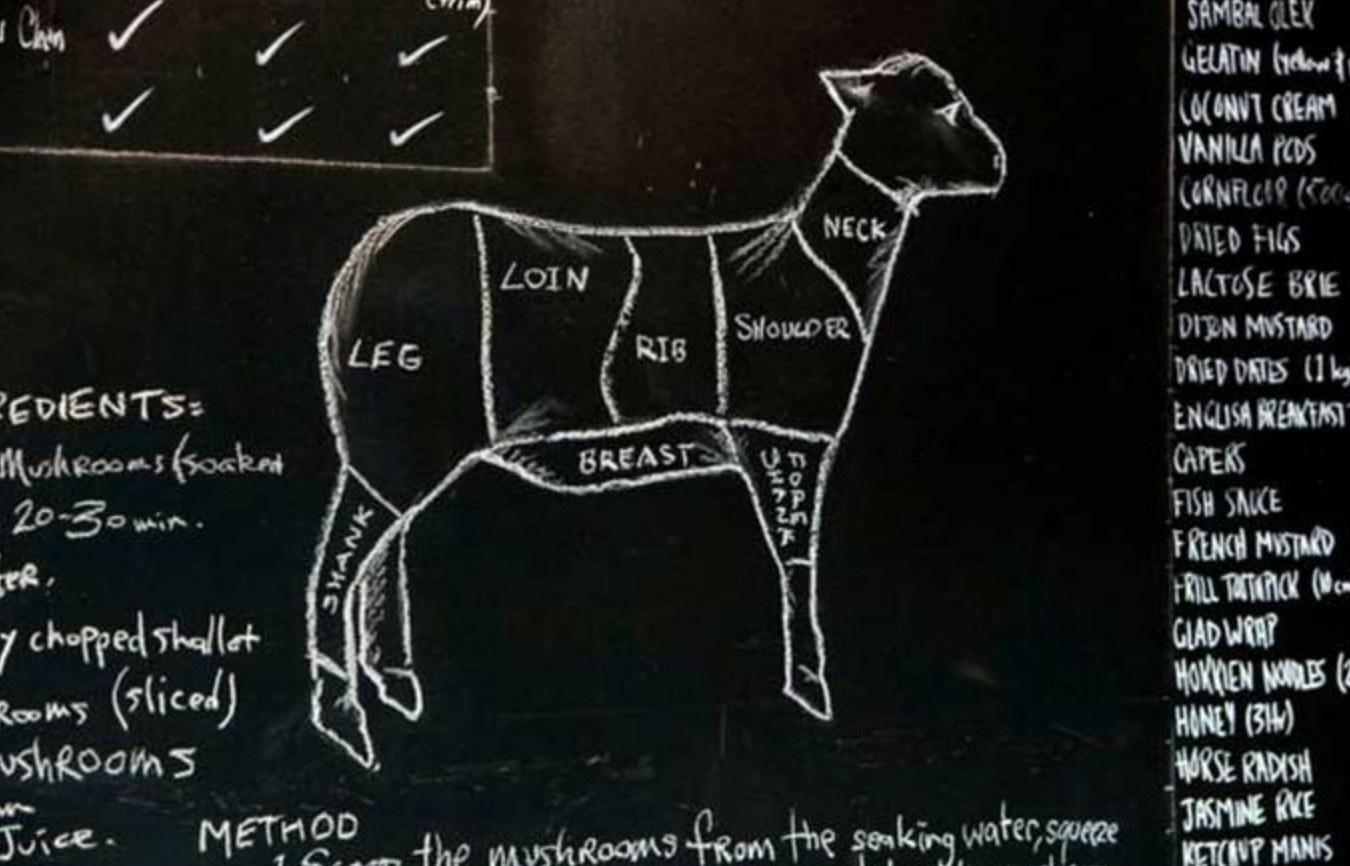 Chin
LEG
LOIN
RIB
SHOULDER
NECK
BREAST
SHANK
FORE
SHANK
REDIENTS:
Mushrooms (soaked
20-30 min.
TER.
y chopped shallot
ROOMS (sliced)
USHROOMS
Juice.
METHOD
the mushrooms from the soaking water, squeeze
SAMBAL OLEK
GELATIN (yellow
COCONUT CREAM
VANILLA PODS
CORNFLOUR (500
DRIED FIGS
LACTOSE BRIE
DIJON MUSTARD
DRIED DATES (1 kg
ENGLISH BREAKFAST
CAPERS
FISH SAUCE
FRENCH MUSTARD
FRILL TOOTHPICK
GLAD WRAP
HOKKIEN NOODLES (2
HONEY
HORSE RADISH
JASMINE RICE
KETCHUP MANIS